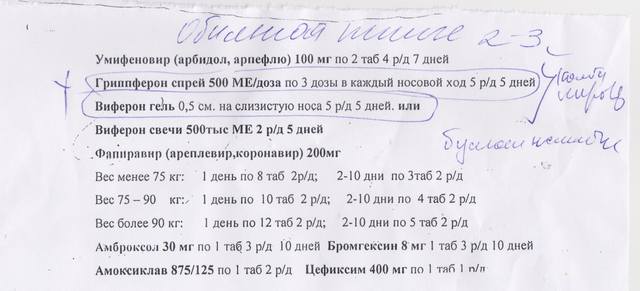 Обильная питье 2-3
Умифеновир (арбидол, арпефлю) 100 мг по 2 таб 4 р/д 7 дней
Гриппферон спрей 500 МЕ/доза по 3 дозы в каждый носовой ход 5 р/д 5 дней
Виферон гель 0,5 см. на слизистую носа 5 р/д 5 дней. или
Виферон свечи 500тыс МЕ 2 р/д 5 дней
Фапиравир (ареплевир,коронавир) 200мг
Вес менее 75 кг: 1 день по 8 таб 2р/д; 2-10 дни по 3таб 2 р/д
Вес 75 – 90 кг: 1 день по 10 таб 2 р/д; 2-10 дни по 4 таб 2 р/д
Вес более 90 кг: 1 день по 12 таб 2 р/д; 2-10 дни по 5 таб 2 р/д
Амброксол 30 мг по 1 таб 3 р/д 10 дней Бромгексин 8 мг 1 таб 3 р/д 10 дней
Амоксиклав 875/125 по 1 таб 2 р/д Цефиксим 400 мг по 1 таб 1 р/д